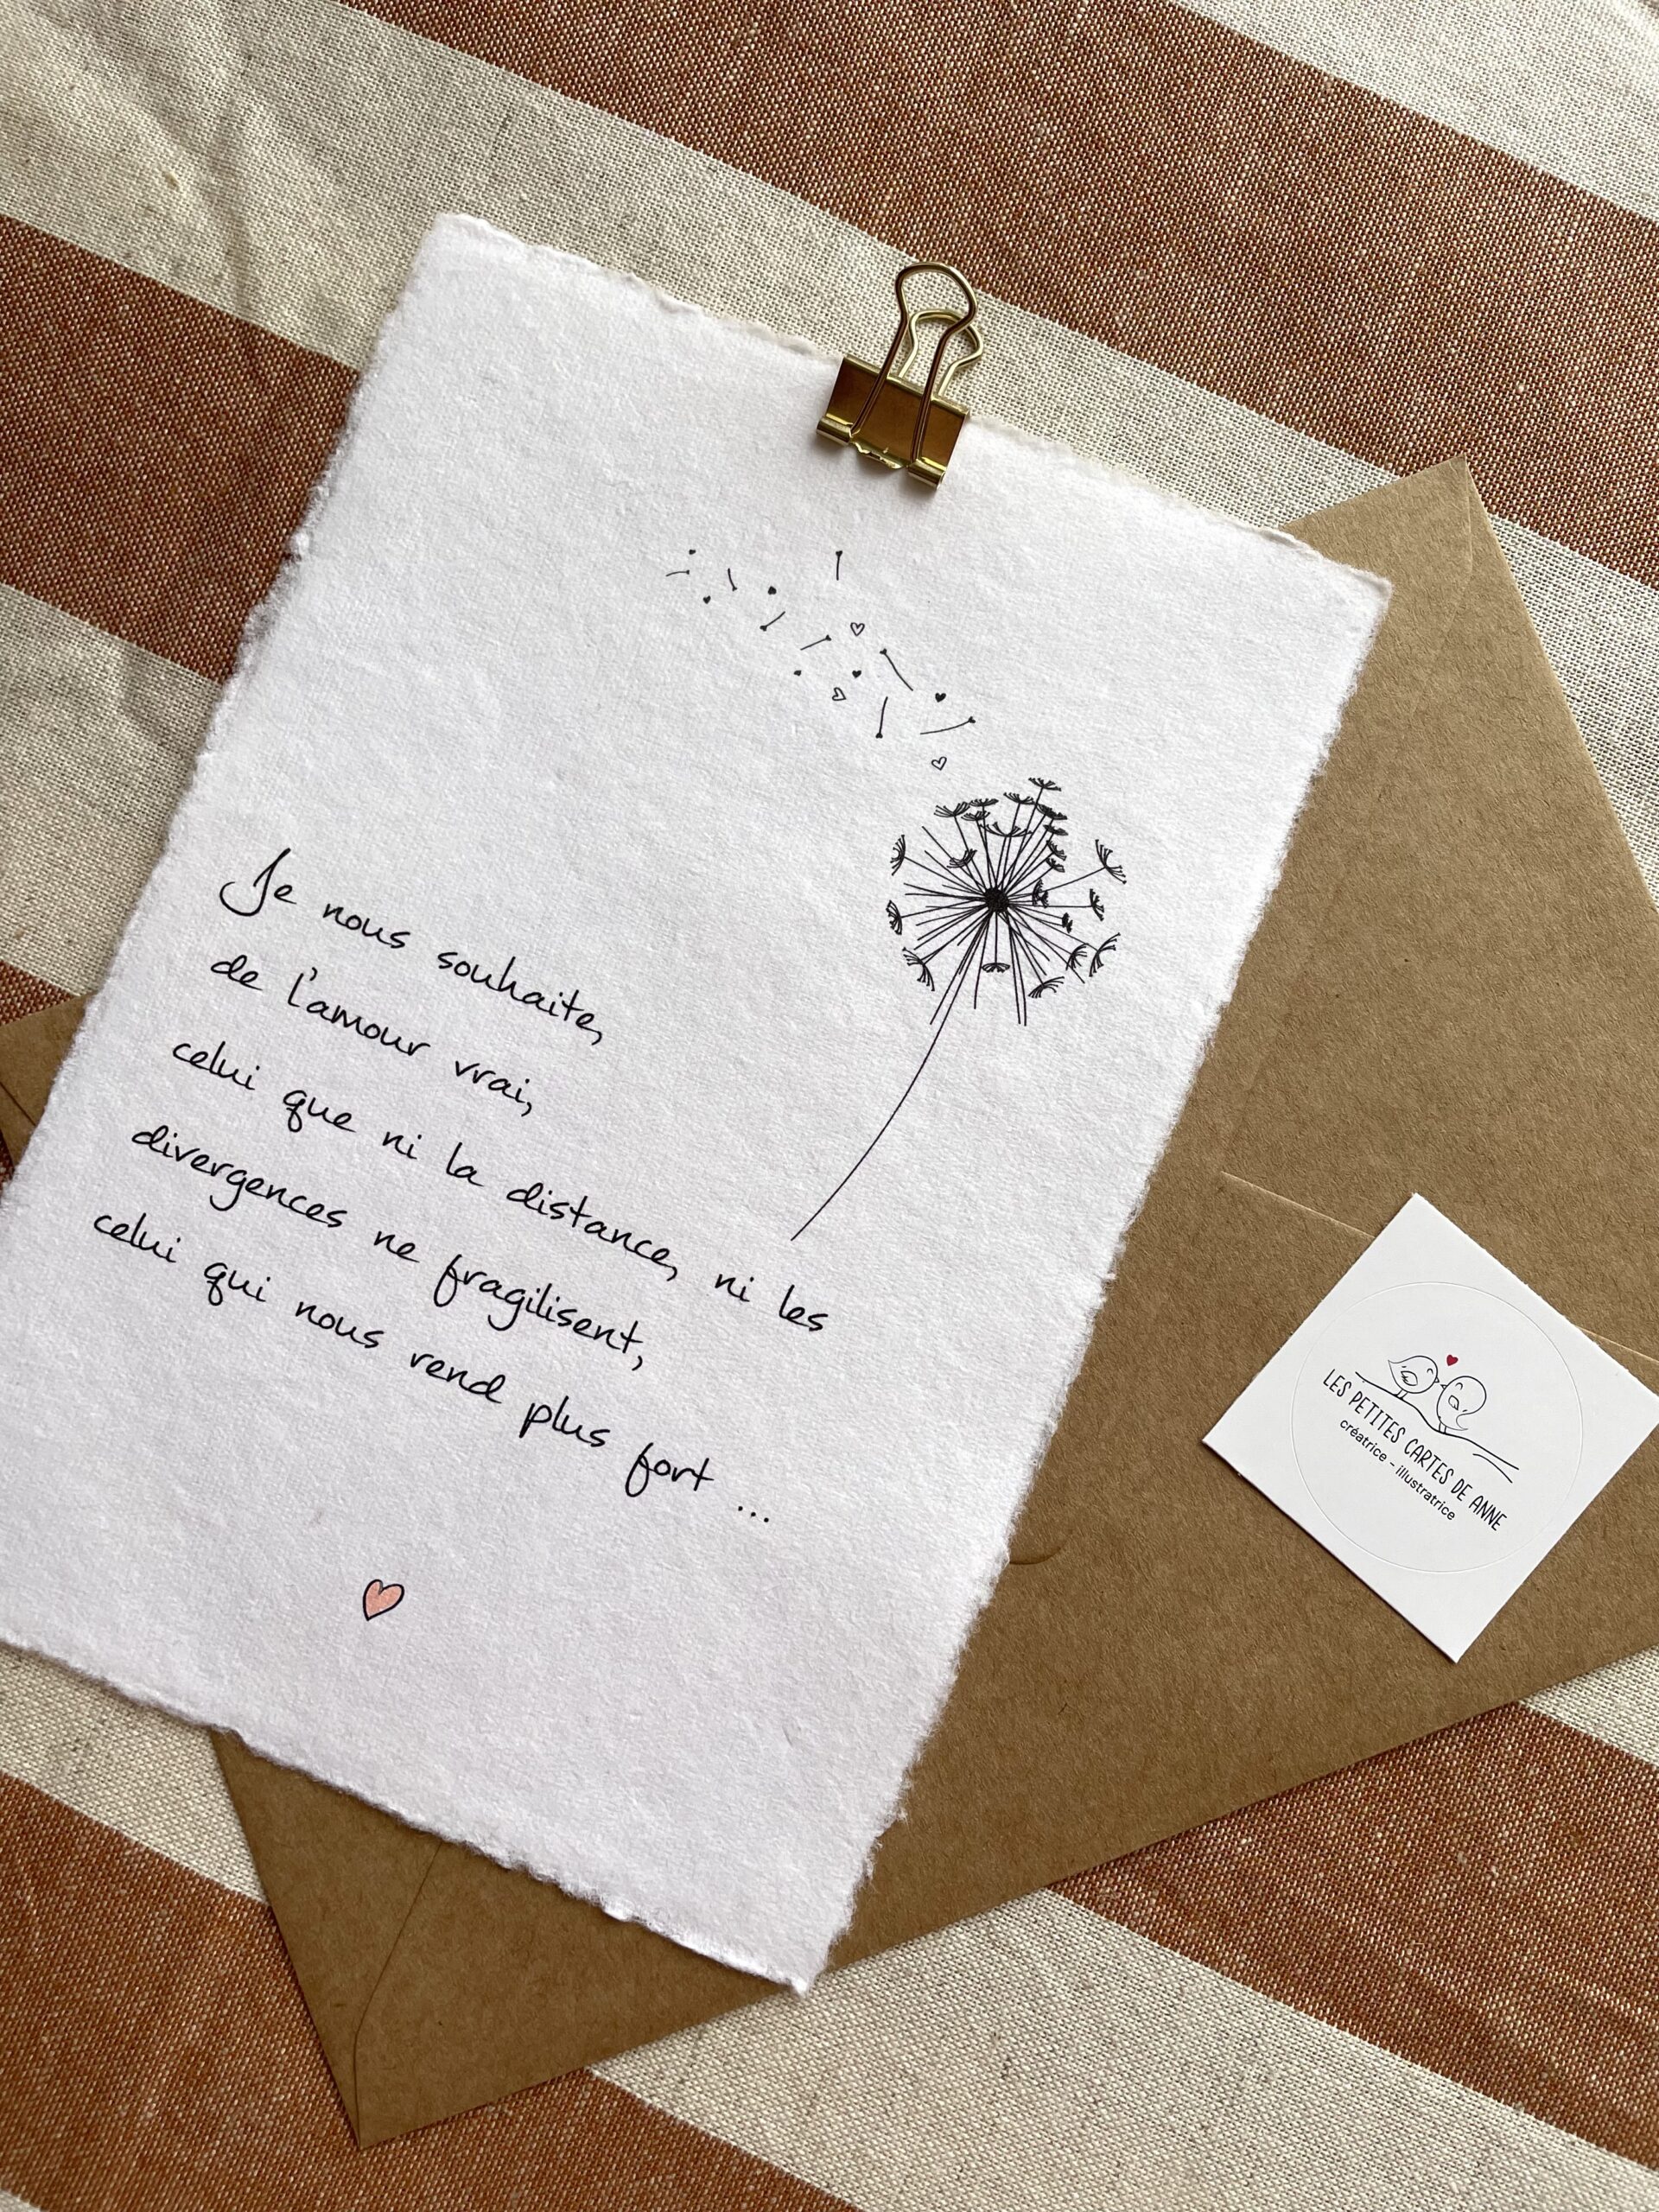 Je nous souhaite,
de l'amour vrai,
celui que ni la distance, ni les
divergences ne fragilisent,
celui qui nous rend plus fort ...
LES PETITES CARTES DE ANNE
créatrice - illustratrice